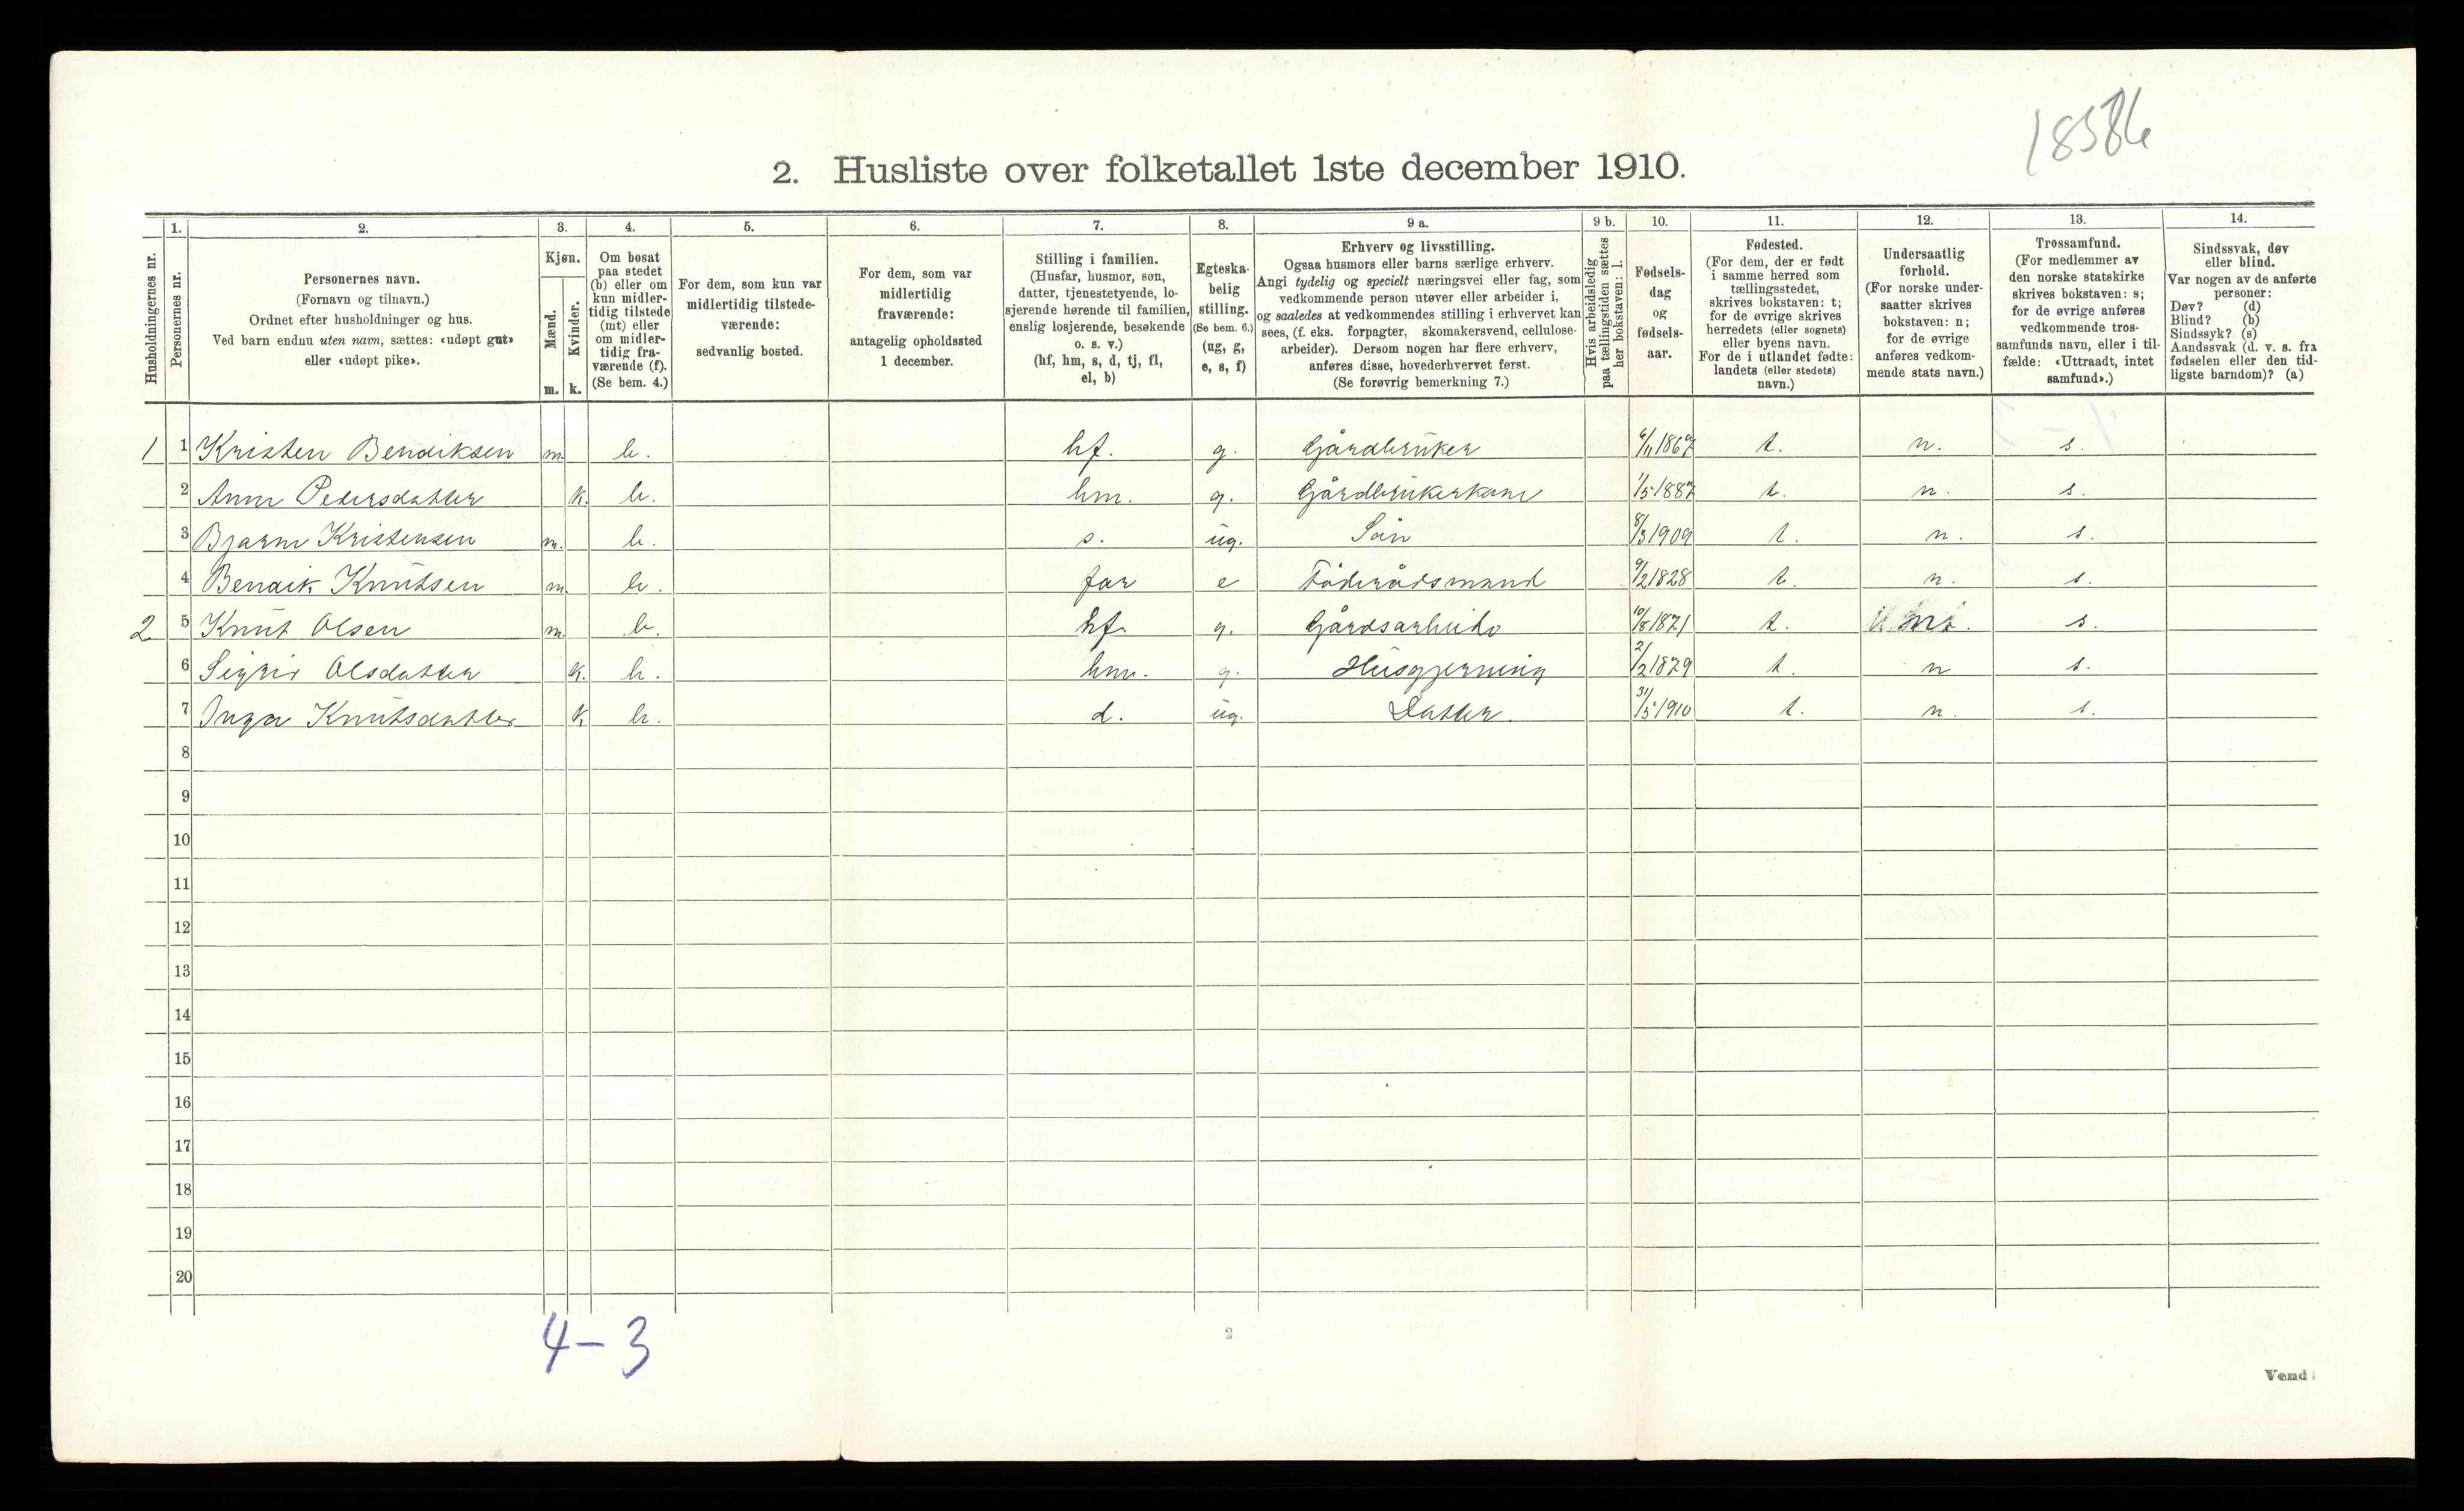 18586
2. Husliste over folketallet 1ste december 1910.
1. 2. 3. 4. 5. 6. 7. 8. 9 a. 9 b. 10. 11. 12. 13. 14.
Husholdningernes nr.
Personernes nr.
Personernes navn.
(Fornavn og tilnavn.)
Ordnet efter husholdninger og hus.
Ved barn endnu uten navn, sættes: «udøpt gut»
eller «udøpt pike».
Kjøn.
Mænd.
m.
Kvinder.
k.
Om bosat
paa stedet
(b) eller om
kun midler-
tidig tilstede
(mt) eller
om midler-
tidig fra-
værende (f).
(Se bem. 4.)
For dem, som kun var
midlertidig tilstede-
værende:
sedvanlig bosted.
For dem, som var
midlertidig
fraværende:
antagelig opholdssted
1 december.
Stilling i familien.
(Husfar, husmor, søn,
datter, tjenestetyende, lo-
sjerende hørende til familien,
enslig losjerende, besøkende
o. s. v.)
(hf, hm, s, d, tj, fl,
el, b)
Egteska-
belig
stilling.
(Se bem. 6.)
(ug, g,
e, s, f)
Erhverv og livsstilling.
Ogsaa husmors eller barns særlige erhverv.
Angi tydelig og specielt næringsvei eller fag, som
vedkommende person utøver eller arbeider i,
og saaledes at vedkommendes stilling i erhvervet kan
sees, (f. eks. forpagter, skomakersvend, cellulose-
arbeider). Dersom nogen har flere erhverv,
anføres disse, hovederhvervet først.
(Se forøvrig bemerkning 7.)
Hvis arbeidsledig
paa tællingstiden sættes
her bokstaven: l.
Fødsels-
dag
og
fødsels-
aar.
Fødested.
(For dem, der er født
i samme herred som
tællingsstedet,
skrives bokstaven: t;
for de øvrige skrives
herredets (eller sognets)
eller byens navn.
For de i utlandet fødte:
landets (eller stedets)
navn.)
Undersaatlig
forhold.
(For norske under-
saatter skrives
bokstaven: n;
for de øvrige
anføres vedkom-
mende stats navn.)
Trossamfund.
(For medlemmer av
den norske statskirke
skrives bokstaven: s;
for de øvrige anføres
vedkommende tros-
samfunds navn, eller i til-
fælde: «Uttraadt, intet
samfund».)
Sindssvak, døv
eller blind.
Var nogen av de anførte
personer:
Døv? (d)
Blind? (b)
Sindssyk? (s)
Aandssvak (d. v. s. fra
fødselen eller den tid-
ligste barndom)? (a)
1 1 Kristen Bendiksen m. b. hf. g. Gårdbruker 6/11 1867 t. n. s.
2 Anne Pedersdatter k. b. hm. g. Gårdbrukerkone 1/5 1887 t. n. s.
3 Bjarne Kristensen m. b. s. ug. Sön 8/3 1909 t. n. s.
4 Bendik Knutsen m. b. far e Föderådsmand 9/2 1828 t. n. s.
2 5 Knut Olsen m. b. hf. g. Gårdsarbeide 10/8 1871 t. s.
6 Sigrid Olsdatter k. b. hm. g. Husgjerning 2/2 1879 t. n s.
7 Inga Knutsdatter k b. d. ug. Datter. 31/5 1910 t. n. s.
8
9
10
11
12
13
14
15
16
17
18
19
20
4-3
2
Vend